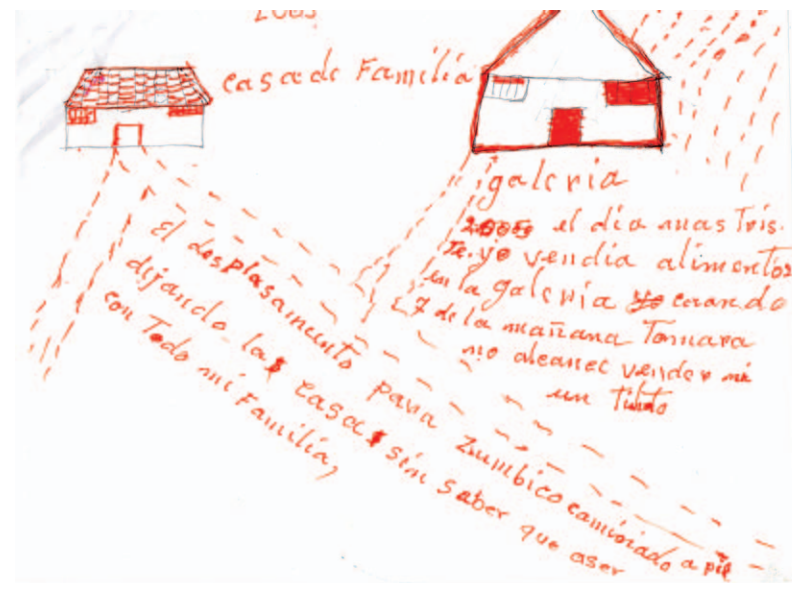 2005
casa de Familia
galeria
2005 el dia mas tris.
te. yo vendia alimentos
en la galeria yo cuando
7 de la mañana Tomara
no alcance vender ni
un Tinto
El desplasamiento para Zumbico caminado a pie
dejando las casas sin saber que aser
con Todo mi Familia,